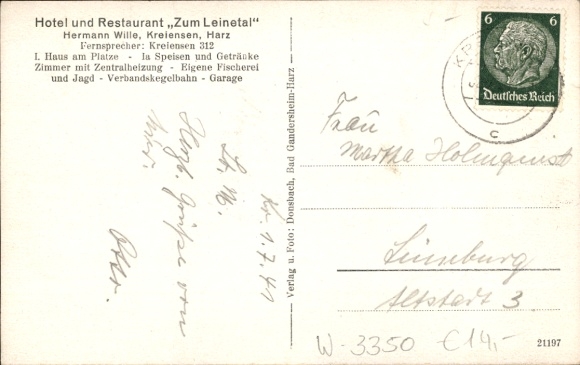 Hotel und Restaurant „Zum Leinetal"
Hermann Wille, Kreiensen, Harz
Fernsprecher: Kreiensen 312
I. Haus am Platze - Ia Speisen und Getränke
Zimmer mit Zentralheizung - Eigene Fischerei
und Jagd - Verbandskegelbahn - Garage
Kr. 1.7.41
L. M.
Herzl. Grüße von
— Verlag u. Foto: Donsbach, Bad Gandersheim-Harz —
6 6
Deutsches Reich
c
Frau
Martha Holmquist
Lüneburg
Altstadt 3
W-3350 €14,-
21197